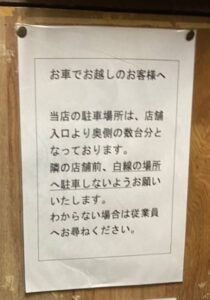 お車でお越しのお客様へ
当店の駐車場所は、店舗
入口より奥側の数台分と
なっております。
隣の店舗前、白線の場所
へ駐車しないようお願い
いたします。
わからない場合は従業員
へお尋ねください。